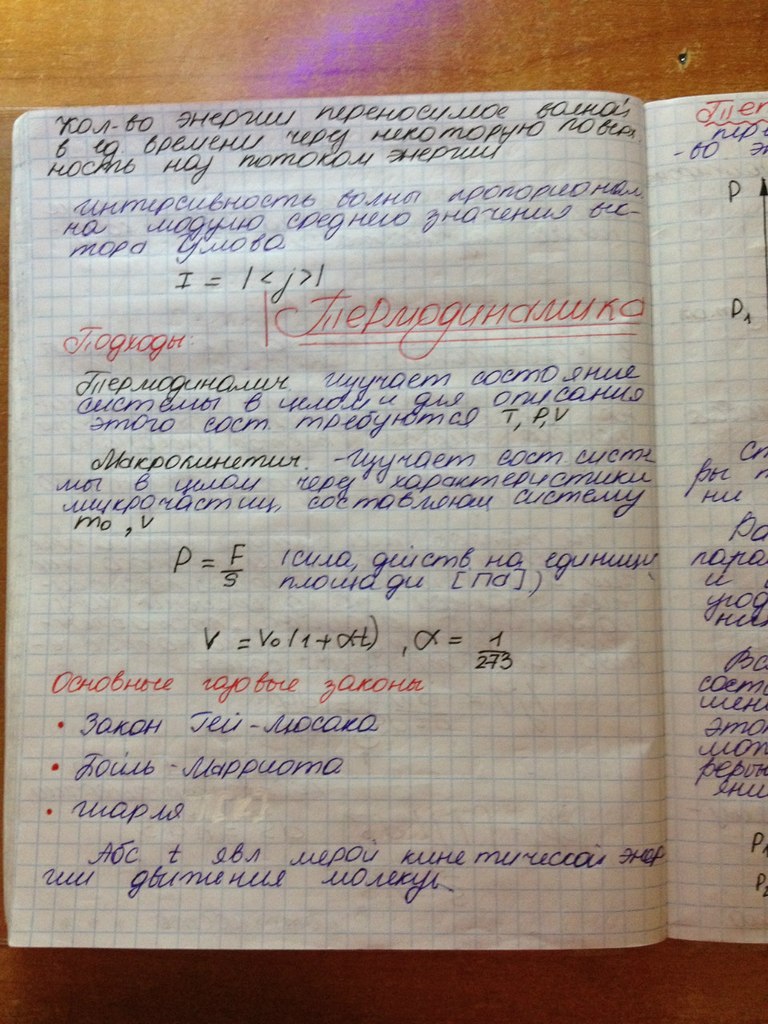 Кол-во энергии переносимое волной
в ед времени через некоторую поверх
ность наз потоком энергии
интерсивность волны пропорионал
на модулю среднего значения век-
тора Умова
I = |<j>|
Термодинамика
Подходы:
Термодиналич изучает состояние
системы в целом и для описания
этого сост требуются T, P, V
Макрокинетич. - Изучает сост систе
мы в целом через характеристики
микрачастиц, составляющ систему
m₀, v
P = F/S (сила, действ на единицу
площади [Па])
V = V₀(1+αt), α = 1/273
Основные газовые законы
• Закон Гей-Люсака
• Бойль-Марриота
• Шарля
Абс t явл мерой кинетической энер
гии движения молекул
P
P₁
ст
ры
ни
пара
и
угод
Вс
сост
шени
этом
мот
яни
P₁
P₂